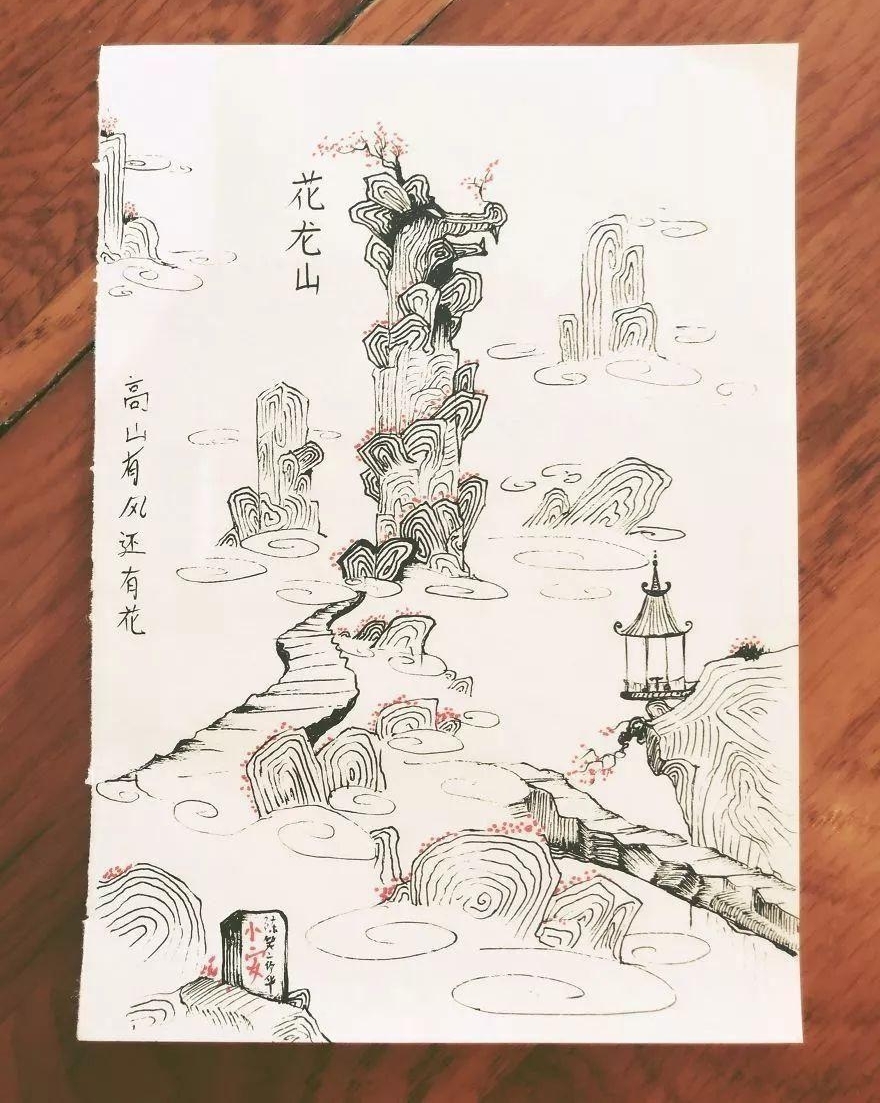 花龙山
高山有风还有花
小安